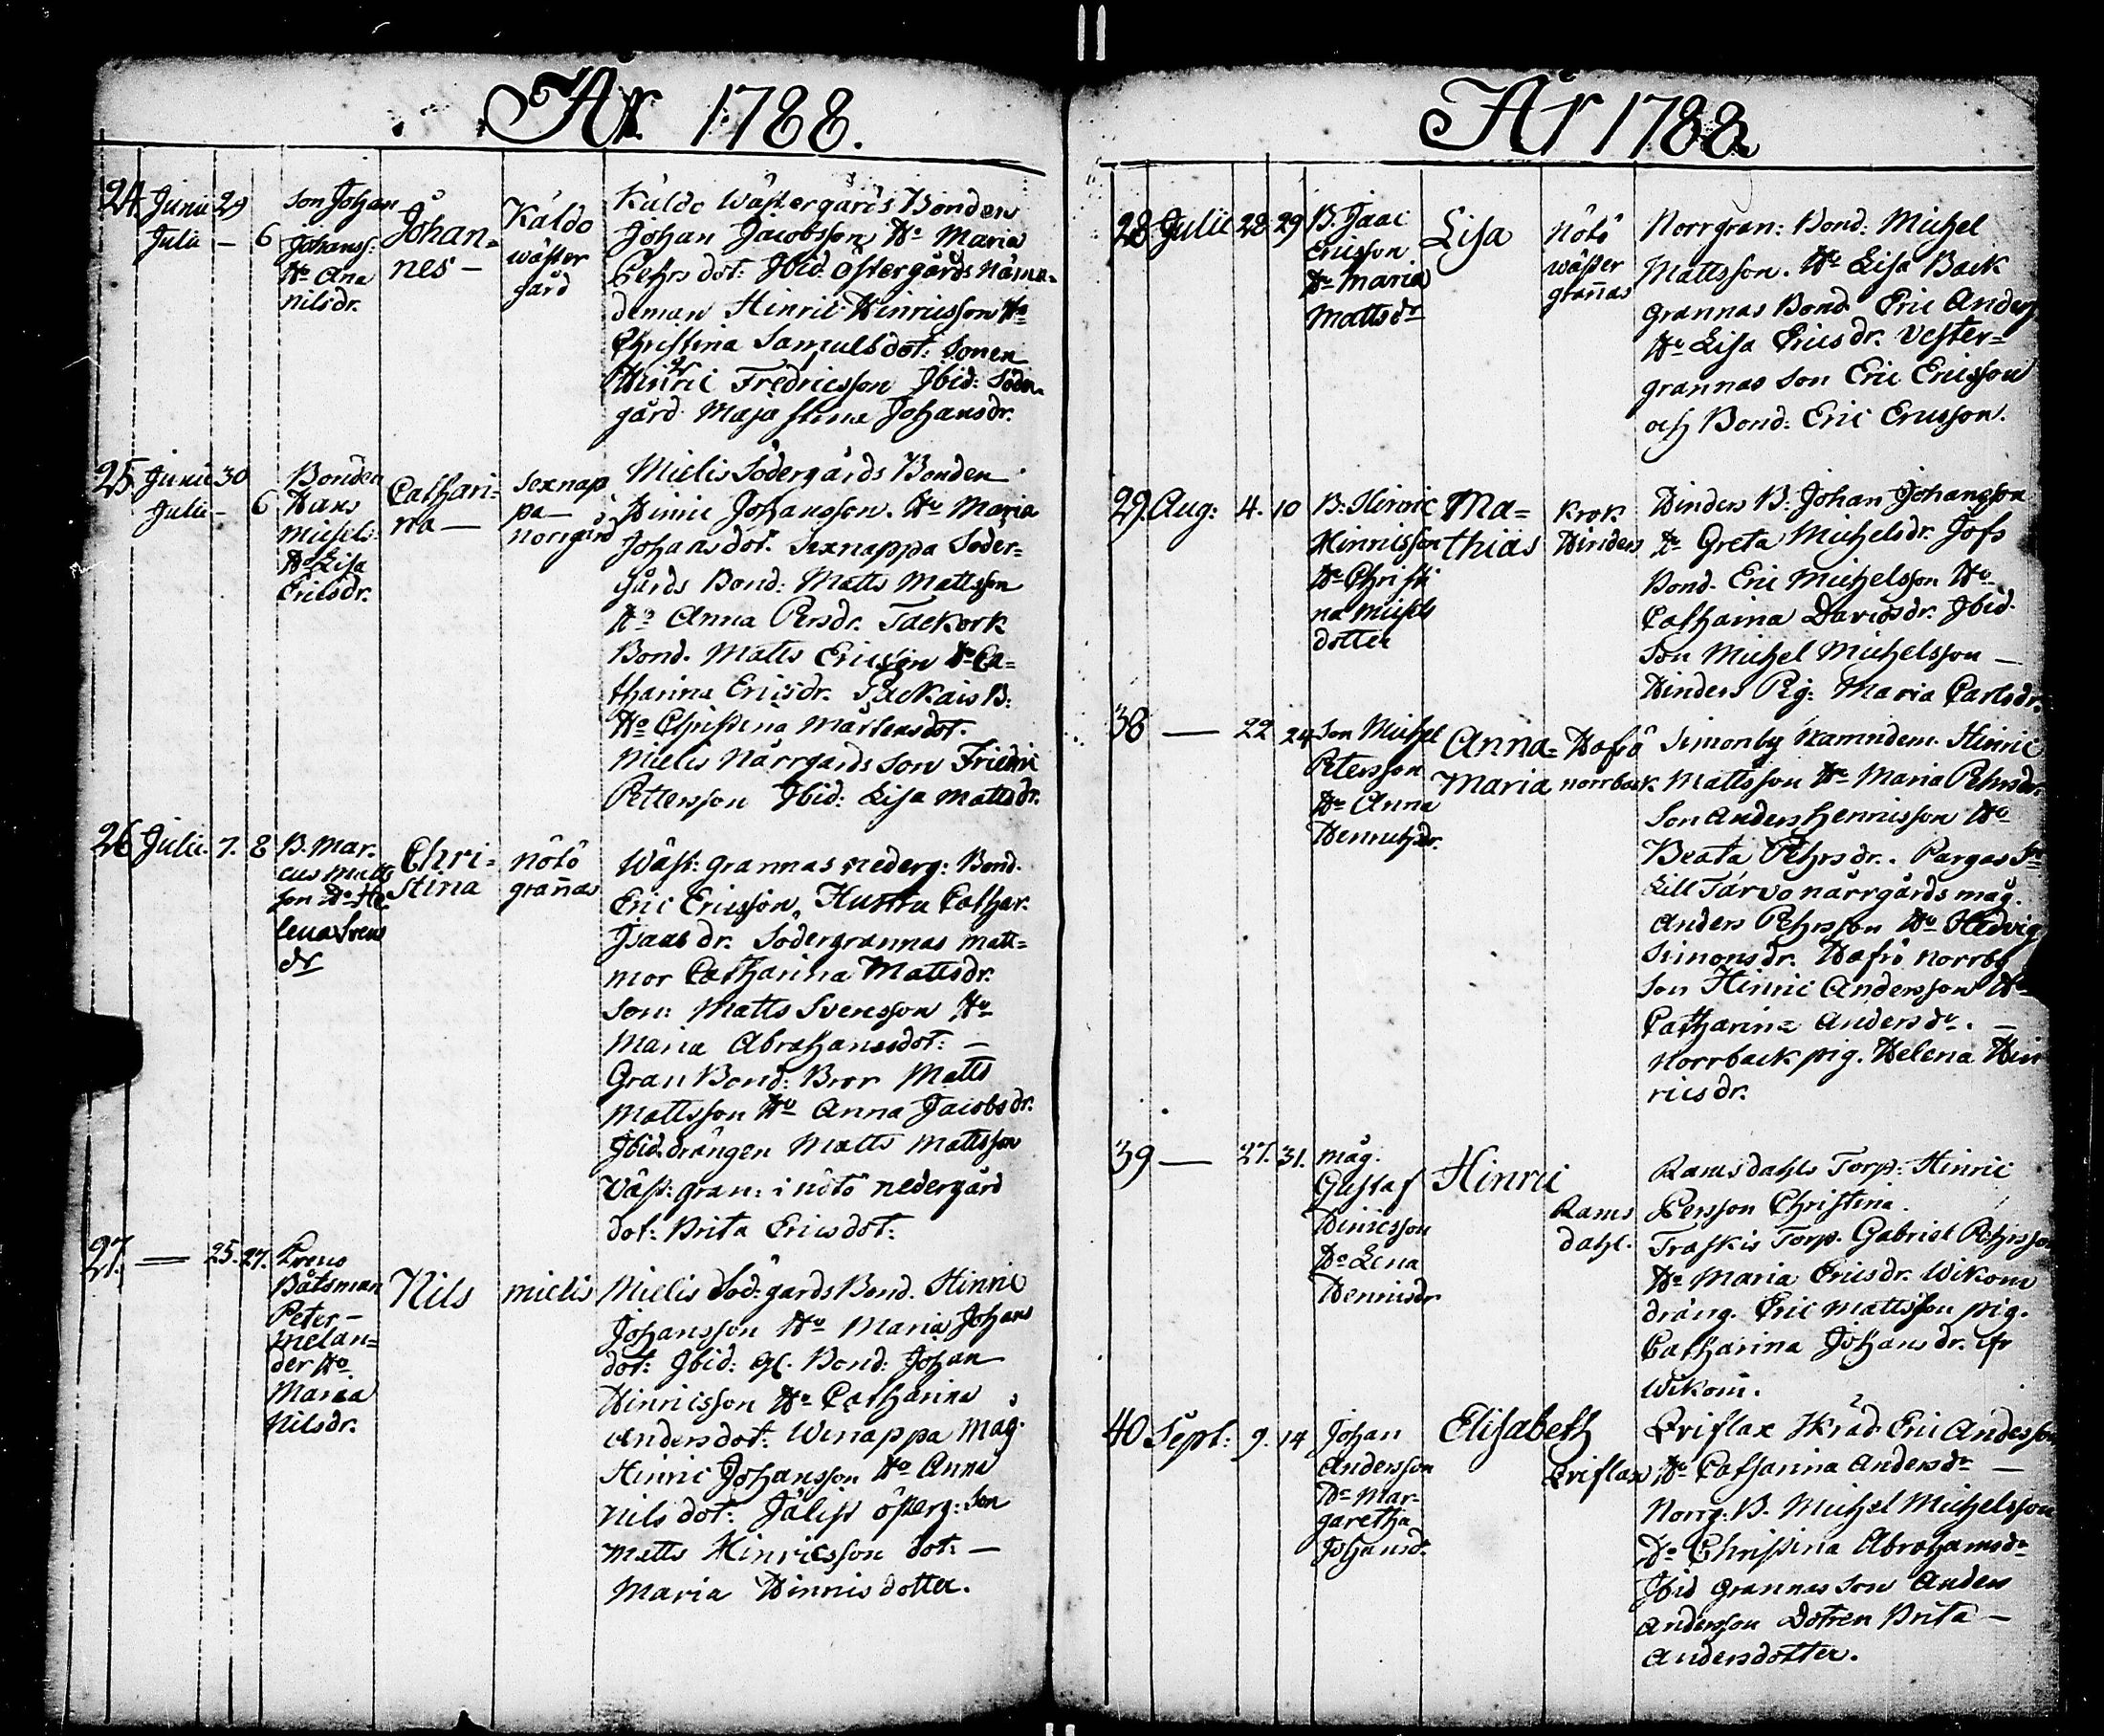 År 1788.
24. Junii 29
Julii — 6
son Johan
Johanss:
Hu Ana
nilsdr.
Johan=
nes —
Kåldo
wäster
gård
Kåldo wästergårds Bonden
Johan Jacobsson Hu Maria
Pehrs dot: Ibid östergårds Näm=
deman Hinric Hinricsson Hu
Christina Samuelsdot: Sonen
Hinric Fredricsson Ibid: Söder
gård Maja stina Johansdr.
25. Junii 30
Julii — 6
Bonden
Hans
Michels:
Hu Lisa
Ericsdr.
Cathari=
na —
Sexnap
pa —
norrgård
Mielis Södergårds Bonden
Hinric Johansson. Hu Maria
Johansdot. Sexnappa Söder=
gårds Bond: Matts Mattsson
Hu Anna Persdr. Tackork
Bond. Matts Ericsson Hu Ca=
tharina Ericsdr. Packais B:
Hu Christina Mårtensdot.
Mielis Närrgards Son Friedric
Pettersson Ibid: Lisa Mattsdr.
26 Julii. 7. 8
B. Mar.
cus Matts
son Hu He
lena Svens
dr
Chri=
stina
Nötö
grañas
Wäst: grannas nederg: Bond.
Eric Ericsson, Hustru Cathar.
Isaacs dr. Södergrannas matt=
mor Catharina Mattsdr.
Son: Matts Svensson Hu
Maria Abrahamsdot: —
Gran Bond: Bror Matts
Mattsson Hu Anna Jacobsdr.
Ibid. drängen Matts Mattsson
Väst: gran: i nötö nedergård
dot: Brita Ericsdot:
27. — 25. 27.
Båtsman
Peter —
melan=
der Hu
Maria
Nilsdr.
Nils
mielis
Mielis Söd: gards Bond. Hinric
Johansson Hu Maria Johans
dot: Ibid: gl. Bond: Johan
Hinricsson Hu Catharina
Andersdot: Wenappa Måg:
Hinric Johansson Hu Anna
Nils dot: Jälist österg: Son
Matts Hinricsson dot: —
Maria Hinricsdotter.
År 1788
28 Julii 28 29
B. Isaac
Ericsson
Hu Maria
Mattsdr
Lisa
Nötö
wäster
grañas
Norrgran: Bond: Michel
Mattsson. Hu Lisa Back
grannas Bond Eric Anders
Hu Lisa Ericsdr. Vester=
grannas Son Eric Ericsson
och Bond: Eric Ericsson.
29. Aug: 4. 10
B: Hinric
Hinricsson
Hu Christi
na Michels
dotter
Ma=
thias
Krok
Hinders
Hinders B: Johan Johansson
Hu Greta Michelsdr. Jofs
Bond. Eric Michelsson Hu
Catharina Davidsdr. Ibid.
Son Michel Michelsson —
Hinders Pig: Maria Carlsdr.
38 — 22 24
Son Michel
Petersson
Hu Anna
Henricsdr.
Anna=
Maria
Hafrö
norrback
Simonby Namndem. Hinric
Mattsson Hu Maria Pehrsdr
Son Anders Henricsson Hu
Beata Pehrsdr. Pargas
Lill Tärvo närrgårds måg.
Anders Pehrsson Hu Hedvig
Simonsdr. Hafrö norrby
Son Hinric Andersson Hu
Catharina Andersdr. —
Norrback pig. Helena Hin
ricsdr.
39 — 27. 31.
måg.
Gustaf
Hinricsson
Hu Lena
Hennisdr
Hinric
Rams
dahl.
Ramsdahls Torp: Hinric
Persson Christina.
Träskis Torp. Gabriel Pehrsson
Hu Maria Ericsdr. Wikom
dräng. Eric Mattsson pig.
Catharina Johansdr. ifr
Wikom.
40 Sept: 9. 14
Johan
Andersson
Hu Mar=
garetha
Johansdr
Elisabeth
Briflax
Briflax Häråd Eric Andersson
Hu Catharina Andersdr —
Norrg: B. Michel Michelsson
Hu Christina Abrahamsdr
Ibid grannas Son Anders
Andersson Dotren Brita —
Andersdotter.